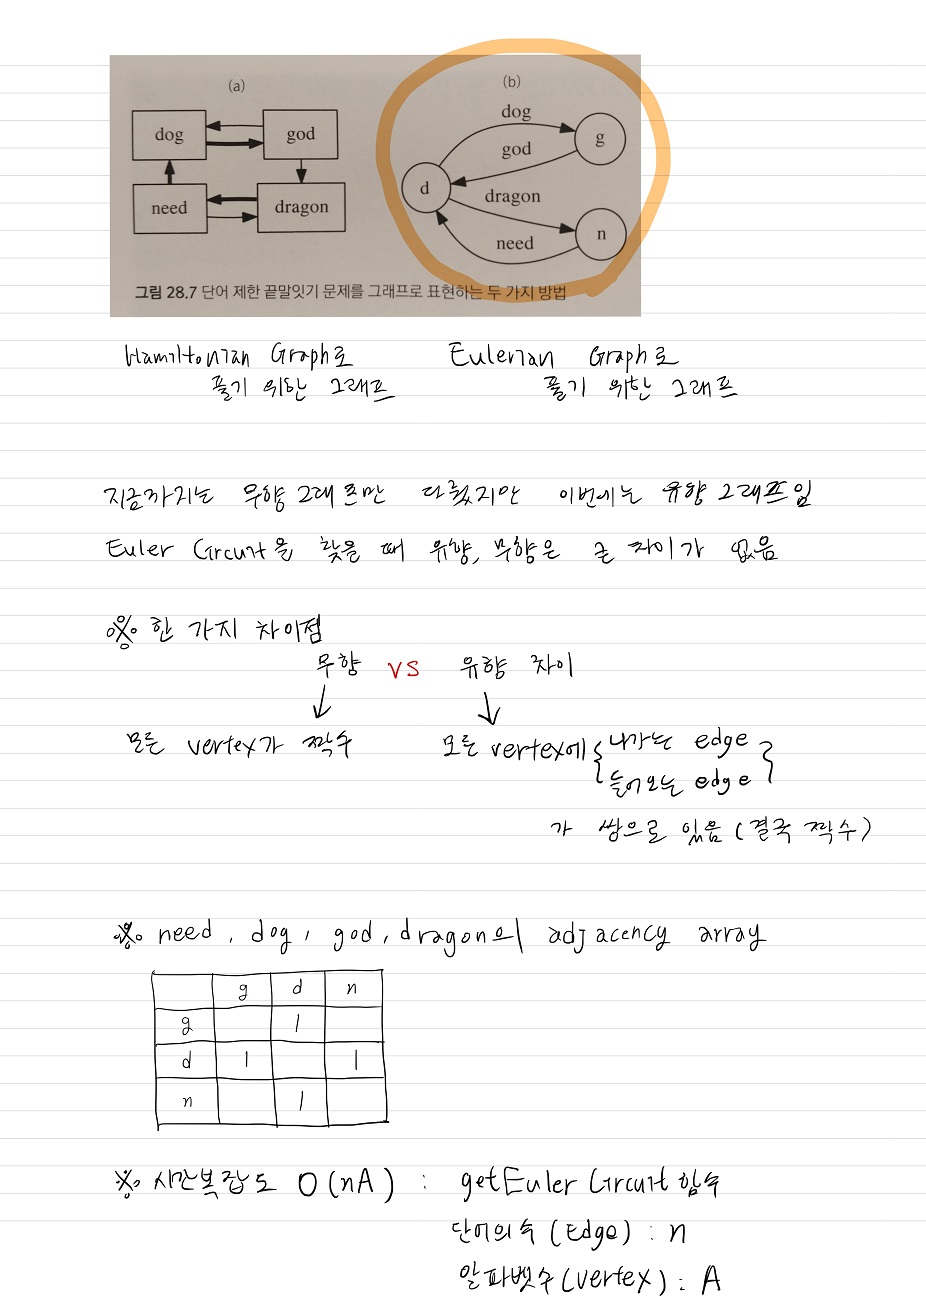 (a)
(b)
dog
god
need
dragon
dog
god
dragon
need
d
g
n
그림 28.7 단어 제한 끝말잇기 문제를 그래프로 표현하는 두 가지 방법
Hamiltonian Graph로
풀기 위한 그래프
Eulerian Graph로
풀기 위한 그래프
지금까지는 무향 그래프만 다뤘지만 이번에는 유향 그래프임
Euler Circuit을 찾을 때 유향, 무향은 큰 차이가 없음
※ 한 가지 차이점
무향 vs 유향 차이
↓ ↓
모든 vertex가 짝수
모든 vertex에 { 나가는 edge
들어오는 edge }
가 쌍으로 있음 (결국 짝수)
※ need, dog, god, dragon의 adjacency array
g d n
g 1
d 1 1
n 1
※ 시간복잡도 O(nA) : getEuler Circuit 함수
단어의 수 (Edge) : n
알파벳수 (vertex) : A